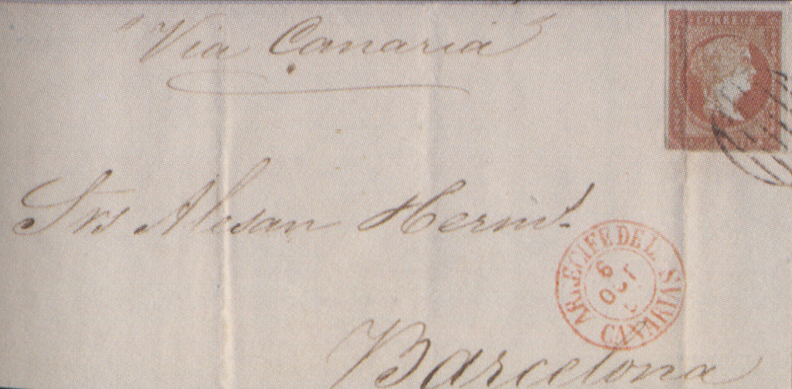 "Via Canaria"
CORREOS
Srs Alesan Herms.
ARRECIFE DE L.
6
OCT
CANARIAS
Barcelona